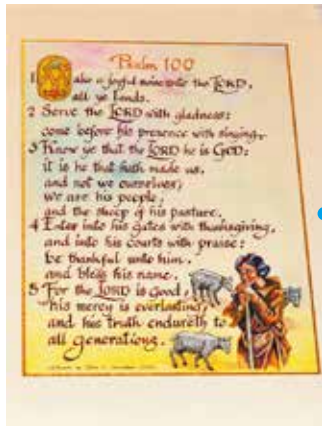 Psalm 100
1 Make a joyful noise unto the LORD,
all ye lands.
2 Serve the LORD with gladness:
come before his presence with singing.
3 Know ye that the LORD he is GOD:
it is he that hath made us,
and not we ourselves;
we are his people,
and the sheep of his pasture.
4 Enter into his gates with thanksgiving,
and into his courts with praise:
be thankful unto him,
and bless his name.
5 For the LORD is good;
his mercy is everlasting;
and his truth endureth to
all generations.